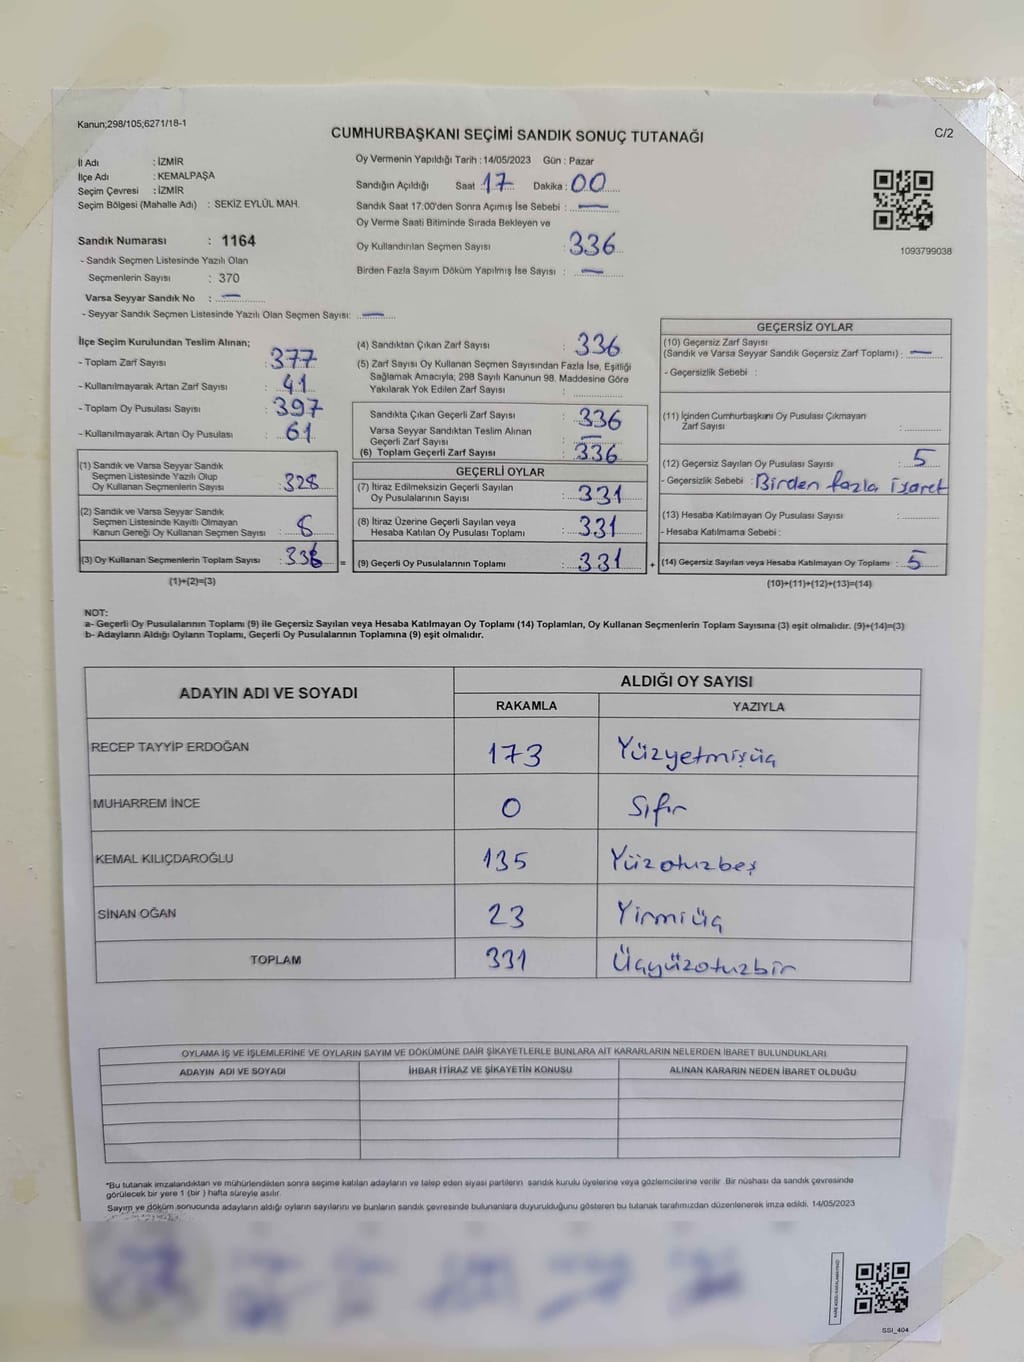 Kanun;298/105;6271/18-1
CUMHURBAŞKANI SEÇİMİ SANDIK SONUÇ TUTANAĞI
C/2
İl Adı : İZMİR
İlçe Adı : KEMALPAŞA
Seçim Çevresi : İZMİR
Seçim Bölgesi (Mahalle Adı) : SEKİZ EYLÜL MAH.
Sandık Numarası : 1164
- Sandık Seçmen Listesinde Yazılı Olan
Seçmenlerin Sayısı : 370
Varsa Seyyar Sandık No : —
- Seyyar Sandık Seçmen Listesinde Yazılı Olan Seçmen Sayısı: —
Oy Vermenin Yapıldığı Tarih : 14/05/2023 Gün : Pazar
Sandığın Açıldığı Saat : 17 Dakika : 00
Sandık Saat 17:00'den Sonra Açımış İse Sebebi : —
Oy Verme Saati Bitiminde Sırada Bekleyen ve
Oy Kullandırılan Seçmen Sayısı : 336
Birden Fazla Sayım Döküm Yapılmış İse Sayısı : —
1093799038
İlçe Seçim Kurulundan Teslim Alınan;
- Toplam Zarf Sayısı : 377
- Kullanılmayarak Artan Zarf Sayısı : 41
- Toplam Oy Pusulası Sayısı : 397
- Kullanılmayarak Artan Oy Pusulası : 61
(1) Sandık ve Varsa Seyyar Sandık
Seçmen Listesinde Yazılı Olup
Oy Kullanan Seçmenlerin Sayısı : 328
(2) Sandık ve Varsa Seyyar Sandık
Seçmen Listesinde Kayıtlı Olmayan
Kanun Gereği Oy Kullanan Seçmen Sayısı : 8
(3) Oy Kullanan Seçmenlerin Toplam Sayısı : 336 =
(1)+(2)=(3)
(4) Sandıktan Çıkan Zarf Sayısı : 336
(5) Zarf Sayısı Oy Kullanan Seçmen Sayısından Fazla İse, Eşitliği
Sağlamak Amacıyla; 298 Sayılı Kanunun 98. Maddesine Göre
Yakılarak Yok Edilen Zarf Sayısı :
Sandıkta Çıkan Geçerli Zarf Sayısı : 336
Varsa Seyyar Sandıktan Teslim Alınan
Geçerli Zarf Sayısı : —
(6) Toplam Geçerli Zarf Sayısı : 336
GEÇERLİ OYLAR
(7) İtiraz Edilmeksizin Geçerli Sayılan
Oy Pusulalarının Sayısı : 331
(8) İtiraz Üzerine Geçerli Sayılan veya
Hesaba Katılan Oy Pusulası Toplamı : 331
(9) Geçerli Oy Pusulalarının Toplamı : 331 +
GEÇERSİZ OYLAR
(10) Geçersiz Zarf Sayısı
(Sandık ve Varsa Seyyar Sandık Geçersiz Zarf Toplamı) : —
- Geçersizlik Sebebi :
(11) İçinden Cumhurbaşkanı Oy Pusulası Çıkmayan
Zarf Sayısı :
(12) Geçersiz Sayılan Oy Pusulası Sayısı : 5
- Geçersizlik Sebebi : Birden fazla işaret
(13) Hesaba Katılmayan Oy Pusulası Sayısı :
- Hesaba Katılmama Sebebi :
(14) Geçersiz Sayılan veya Hesaba Katılmayan Oy Toplamı : 5
(10)+(11)+(12)+(13)=(14)
NOT:
a- Geçerli Oy Pusulalarının Toplamı (9) ile Geçersiz Sayılan veya Hesaba Katılmayan Oy Toplamı (14) Toplamları, Oy Kullanan Seçmenlerin Toplam Sayısına (3) eşit olmalıdır. (9)+(14)=(3)
b- Adayların Aldığı Oyların Toplamı, Geçerli Oy Pusulalarının Toplamına (9) eşit olmalıdır.
ADAYIN ADI VE SOYADI
ALDIĞI OY SAYISI
RAKAMLA YAZIYLA
RECEP TAYYİP ERDOĞAN 173 Yüzyetmişüç
MUHARREM İNCE 0 Sıfır
KEMAL KILIÇDAROĞLU 135 Yüzotuzbeş
SİNAN OĞAN 23 Yirmiüç
TOPLAM 331 Üçyüzotuzbir
OYLAMA İŞ VE İŞLEMLERİNE VE OYLARIN SAYIM VE DÖKÜMÜNE DAİR ŞİKAYETLERLE BUNLARA AİT KARARLARIN NELERDEN İBARET BULUNDUKLARI
ADAYIN ADI VE SOYADI İHBAR İTİRAZ VE ŞİKAYETİN KONUSU ALINAN KARARIN NEDEN İBARET OLDUĞU
*Bu tutanak imzalandıktan ve mühürlendikten sonra seçime katılan adayların ve talep eden siyasi partilerin sandık kurulu üyelerine veya gözlemcilerine verilir. Bir nüshası da sandık çevresinde
görülecek bir yere 1 (bir ) hafta süreyle asılır.
Sayım ve döküm sonucunda adayların aldığı oyların sayılarını ve bunların sandık çevresinde bulunanlara duyurulduğunu gösteren bu tutanak tarafımızdan düzenlenerek imza edildi. 14/05/2023
SSI_404